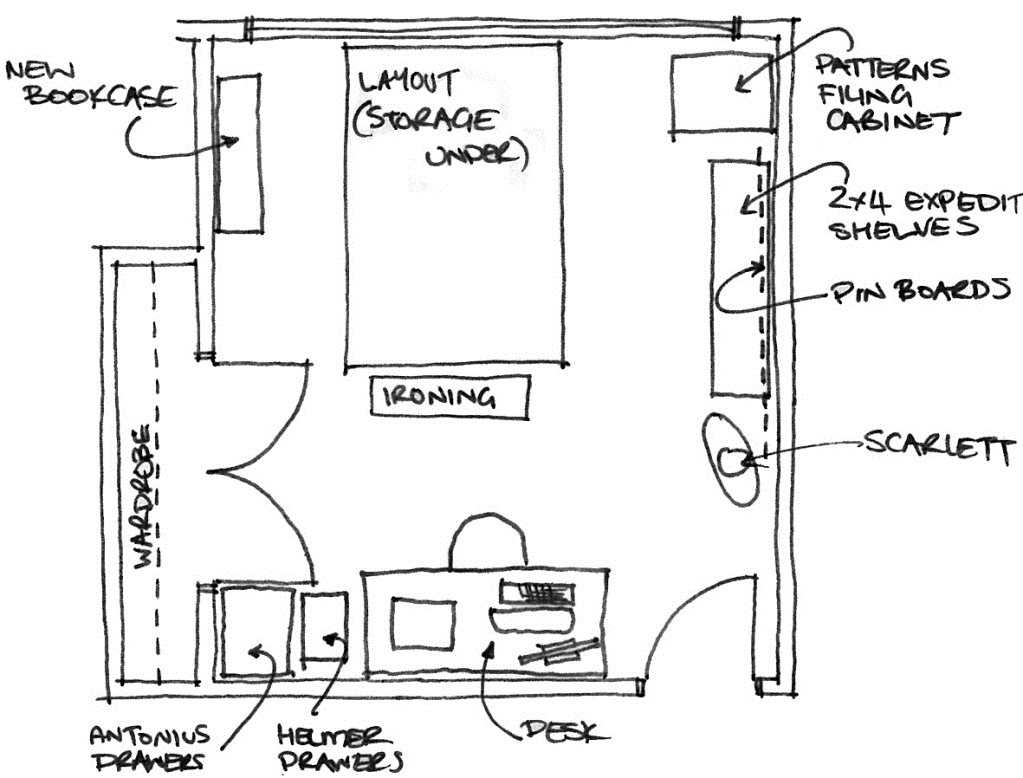 NEW
BOOKCASE
LAYOUT
(STORAGE
UNDER)
PATTERNS
FILING
CABINET
2x4 EXPEDIT
SHELVES
PIN BOARDS
IRONING
SCARLETT
WARDROBE
ANTONIUS
DRAWERS
HELMER
DRAWERS
DESK